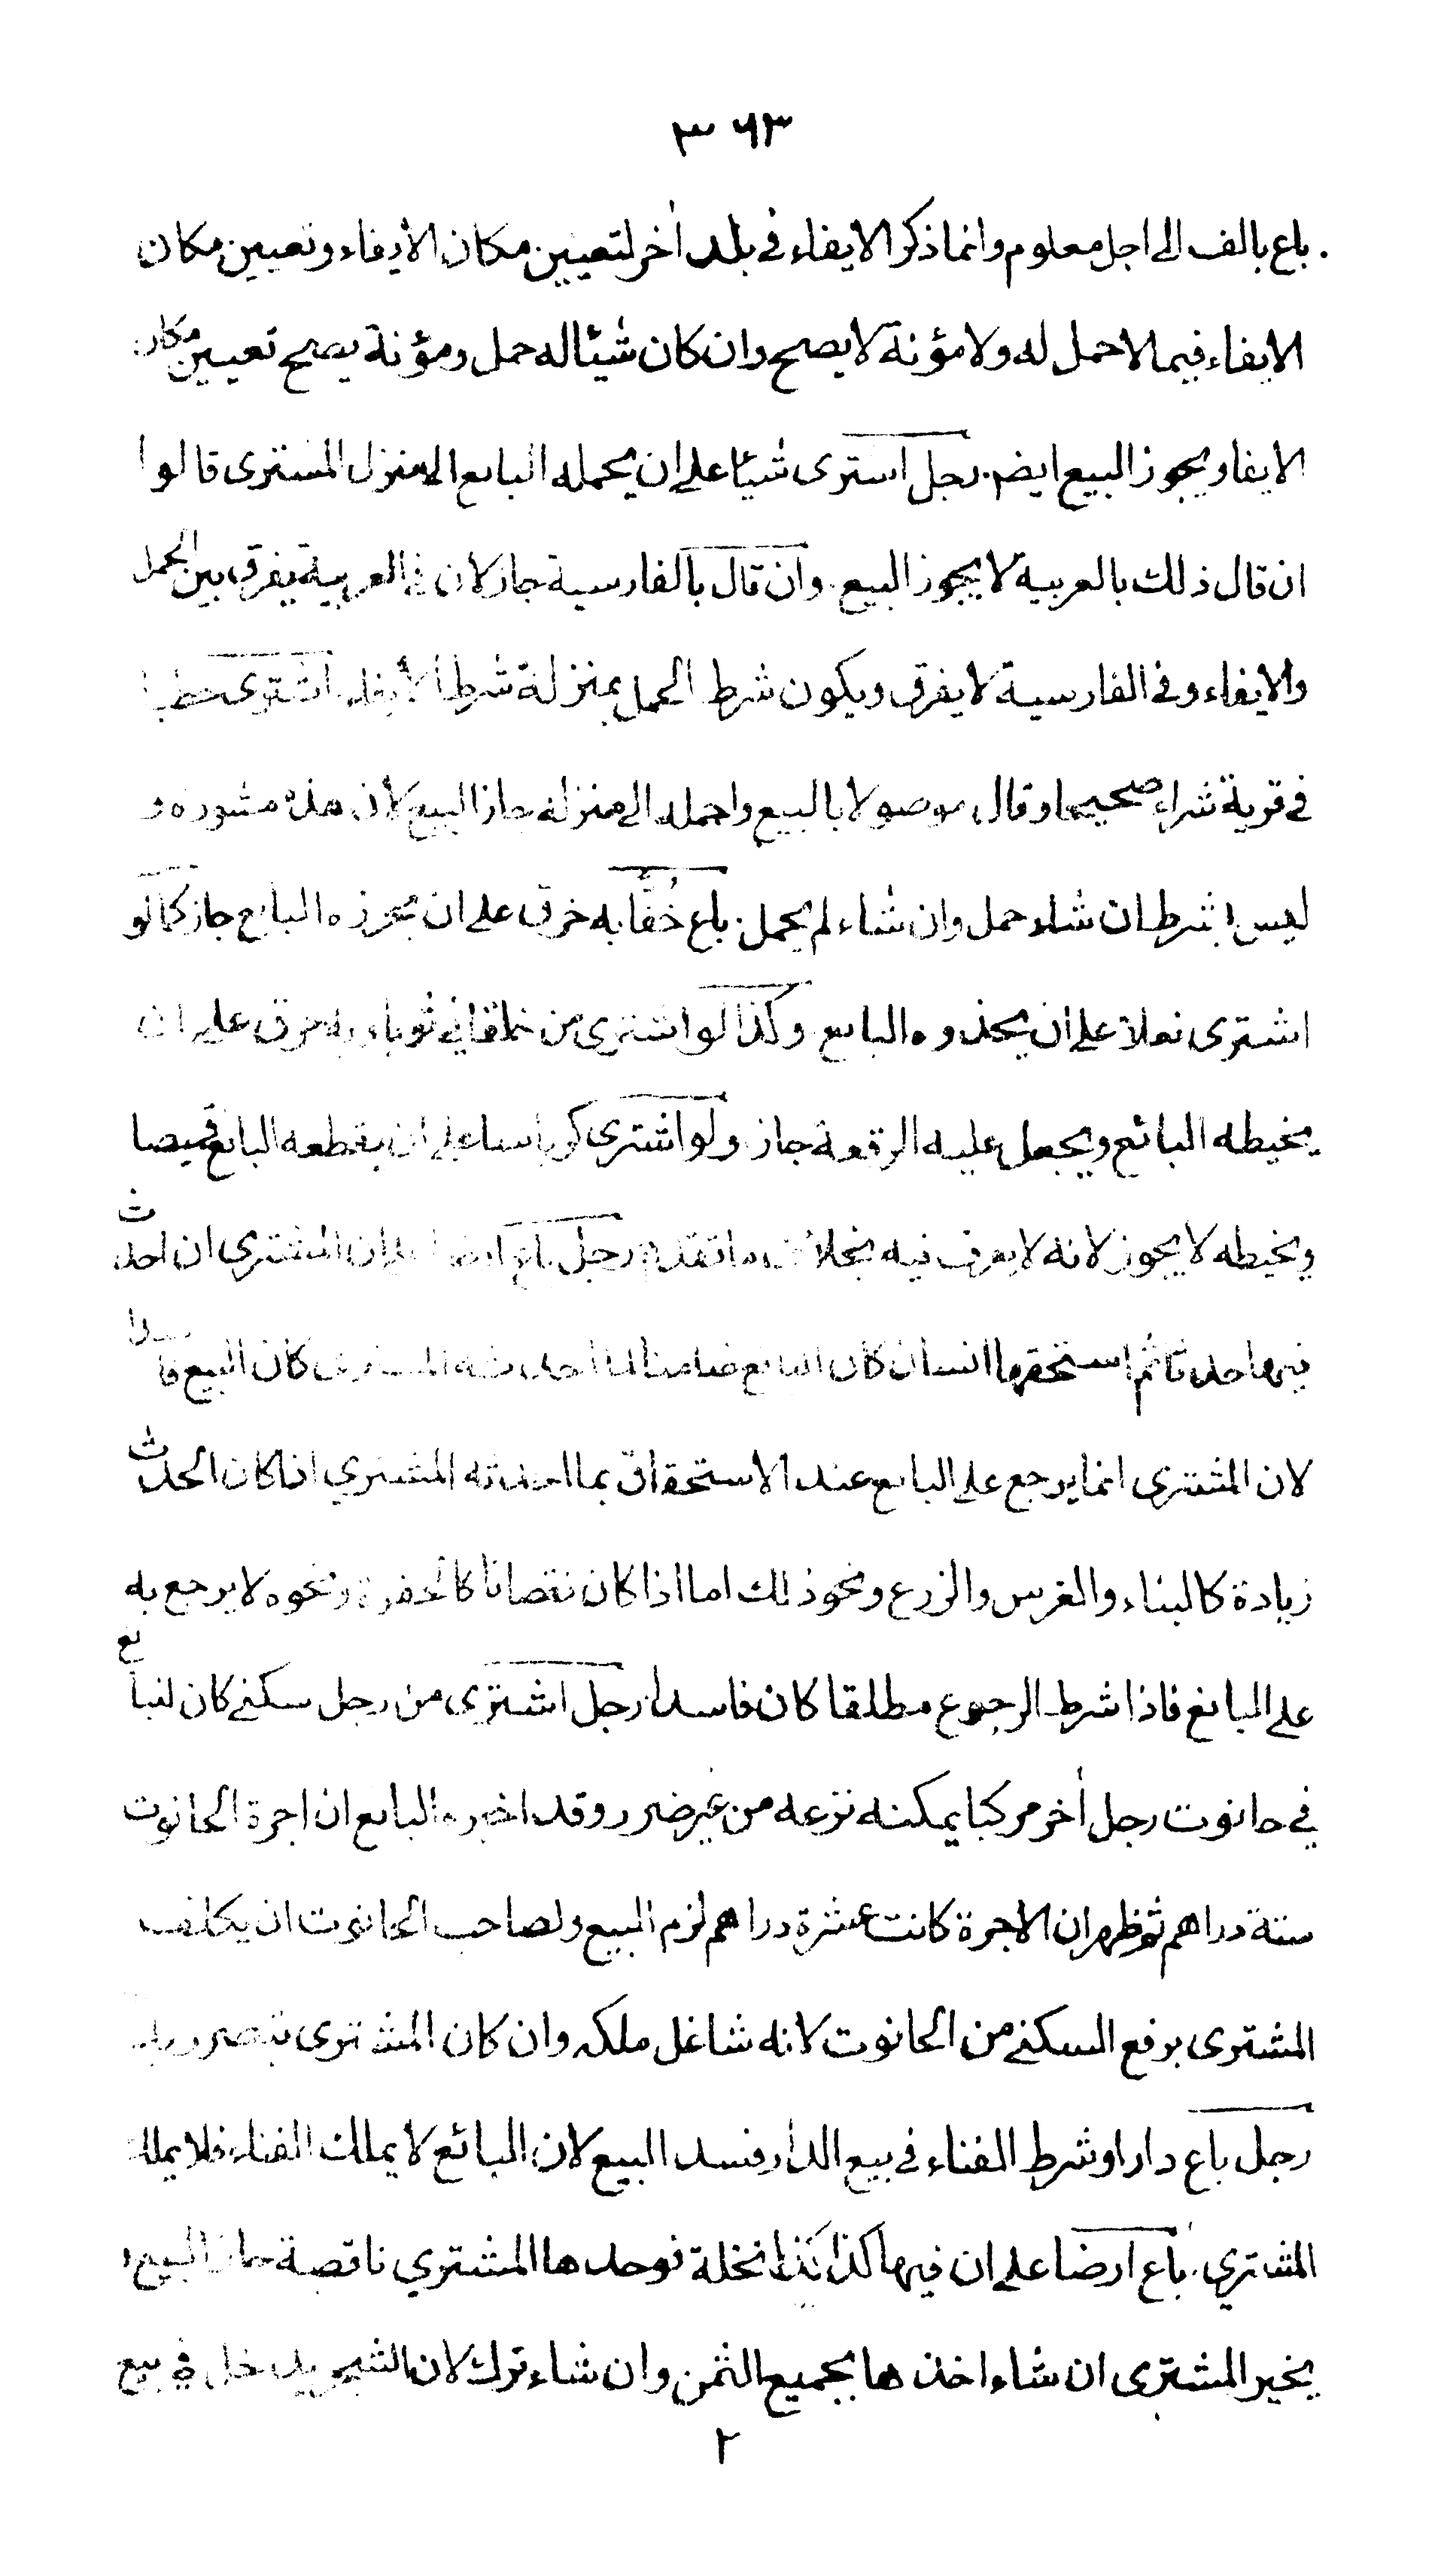 ٣٦٣
باع بالف الى اجل معلوم وانما ذكر الايفاء في بلد أخر لتعيين مكان الايفاء وتعيين مكان
الايفاء فيما لاحمل له ولا مؤنة لا يصح وان كان شيئا له حمل ومؤنة يصح تعيين مكان
الايفا ويجوز البيع ايضم رجل اشترى شيئا على ان يحمله البايع الى منزل المشترى قالوا
ان قال ذلك بالعربية لا يجوز البيع وان قال بالفارسية جاز لان في العربية يفرق بين الحمل
والايفاء وفي الفارسية لا يفرق ويكون شرط الحمل بمنزلة شرط الايفاء اشترى حطبا
في قرية شراء صحيحا وقال موصولا بالبيع واحمله الى منزله جاز البيع لان هذه مشورة و
ليس بشرط ان شاء حمل وان شاء لم يحمل باع خُفّا به خرق على ان يحرزه البايع جاز كما لو
اشترى نعلا على ان يحذوه البايع وكذا لو اشترى من خلقاني ثوبا وبه خرق على ان
يخيطه البائع ويجعل عليه الرقعة جاز ولو اشترى كرباسا على ان يقطعه البايع قميصا
ويخيطه لا يجوز لانه لا يعرف فيه بخلاف ما تقدم رجل باع ارضا على ان المشترى ان احدث
فيها حدثا ثم استحقها انسان كان البايع ضامنا لما احدثه المشترى كان البيع فاسدا
لان المشترى انما يرجع على البايع عند الاستحقاق بما احدثه المشتري اذا كان الحدث
زيادة كالبناء والغرس والزرع ونحو ذلك اما اذا كان نقصانا كالحفرة ونحوه لا يرجع به
على البايع فاذا شرط الرجوع مطلقا كان فاسدا رجل اشترى من رجل سكنى كان لبايع
في حانوت رجل أخر مركبا يمكنه نزعه من غير ضرر وقد اخبره البايع ان اجرة الحانوت
ستة دراهم ثم ظهر ان الاجرة كانت عشرة دراهم لزم البيع ولصاحب الحانوت ان يكلف
المشترى برفع السكنى من الحانوت لانه شاغل ملكه وان كان المشترى يتضرر به
رجل باع دارا وشرط الفناء في بيع الدار فسد البيع لان البائع لا يملك الفناء فلا يملك
المشتري باع ارضا على ان فيها كذا كذا نخلة فوجدها المشتري ناقصة جاز البيع و
يخير المشترى ان شاء اخذها بجميع الثمن وان شاء ترك لان الشجر يدخل في بيع
٢